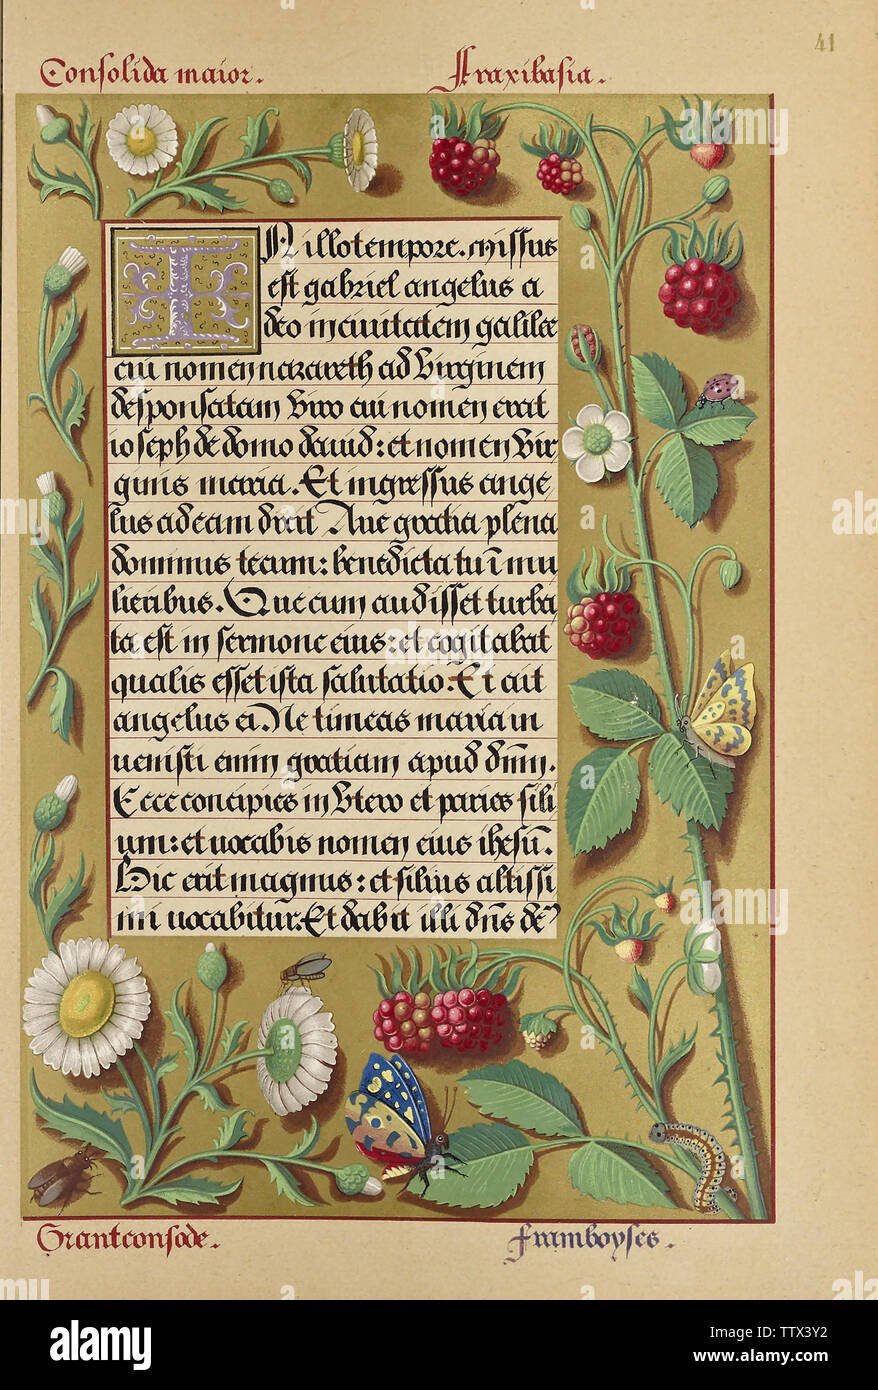 41
Consolida maior. Fraxibasia.
IN illo tempore. missus
est gabriel angelus a
deo in ciuitatem galilee
cui nomen nazareth ad Virginem
desponsatam Viro cui nomen erat
ioseph de domo dauid: et nomen Vir
ginis maria. Et ingressus ange
lus ad eam dixit Aue gratia plena
dominus tecum: benedicta tu ī mu
lieribus. Que cum audisset turba
ta est in sermone eius: et cogitabat
qualis esset ista salutatio. Et ait
angelus ei Ne timeas maria in
uenisti enim gratiam apud dnm̄.
Ecce concipies in Vtero et paries fili
um: et uocabis nomen eius ihesū.
Hic erit magnus: et filius altissi
mi uocabitur. Et dabit illi dn̄s de᷒
Grantconsode. Framboyses.
alamy
a
alamy
Image ID: TTX3Y2
www.alamy.com